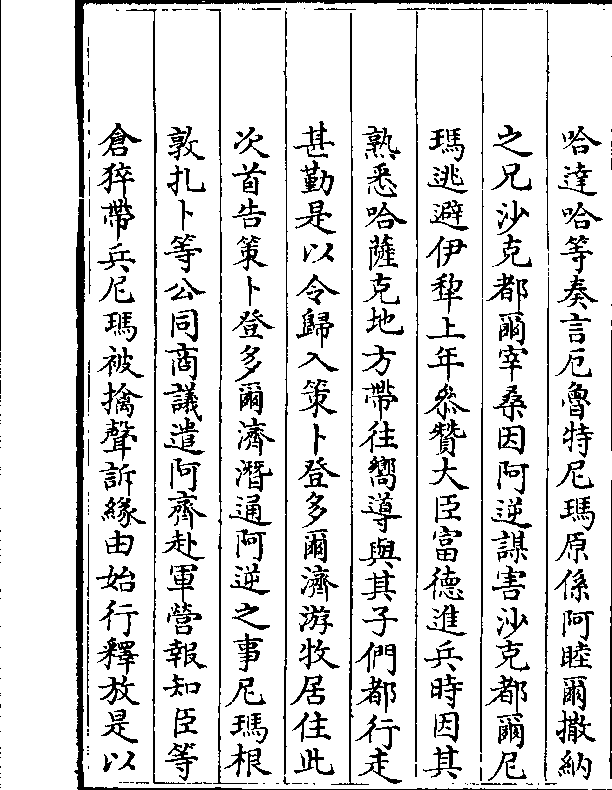 哈達哈等奏言厄魯特尼瑪原係阿睦爾撒納
之兄沙克都爾宰桑因阿逆謀害沙克都爾尼
瑪逃避伊犂上年叅贊大臣富德進兵時因其
熟悉哈薩克地方帶往嚮導與其子們都行走
甚勤是以令歸入策卜登多爾濟游牧居住此
次首告策卜登多爾濟潛通阿逆之事尼瑪根
敦扎卜等公同商議遣阿齊赴軍營報知臣等
倉猝帶兵尼瑪被擒聲訴緣由始行釋放是以